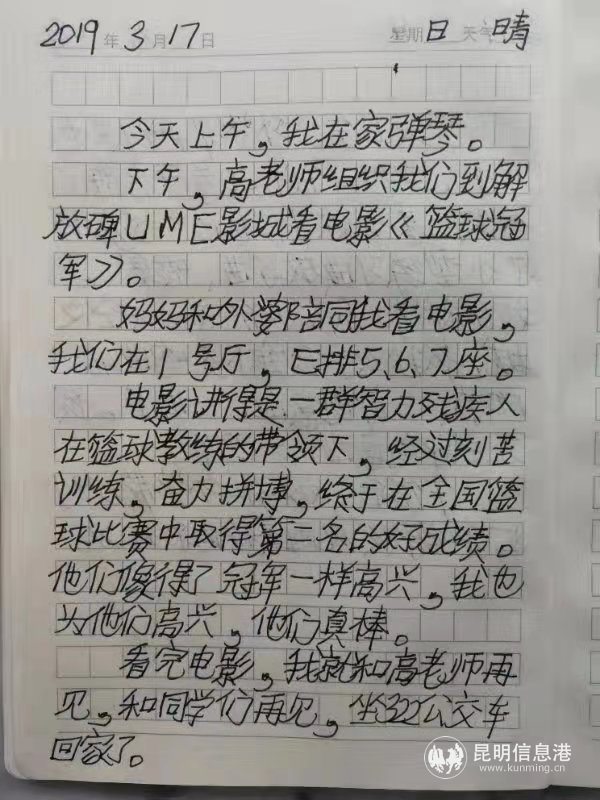 2019年3月17日 星期日 天气晴
今天上午，我在家弹琴。
下午，高老师组织我们到解
放碑UME影城看电影《篮球冠
军》。
妈妈和外婆陪同我看电影，
我们在1号厅，E排5、6、7座。
电影讲得是一群智力残疾人
在篮球教练的带领下，经过刻苦
训练，奋力拼博，终于在全国篮
球比赛中取得第二名的好成绩。
他们像得了冠军一样高兴，我也
为他们高兴，他们真棒。
看完电影，我就和高老师再
见，和同学们再见，坐322公交车
回家了。
昆明信息港
www.kunming.cn